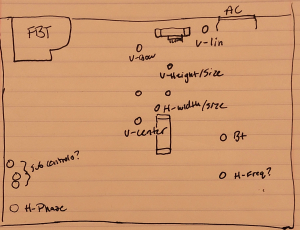 AC
FBT
V-lin
V-Height/Size
H-width/size
V-center
B+
Sub controls?
H-Freq?
H-Phase